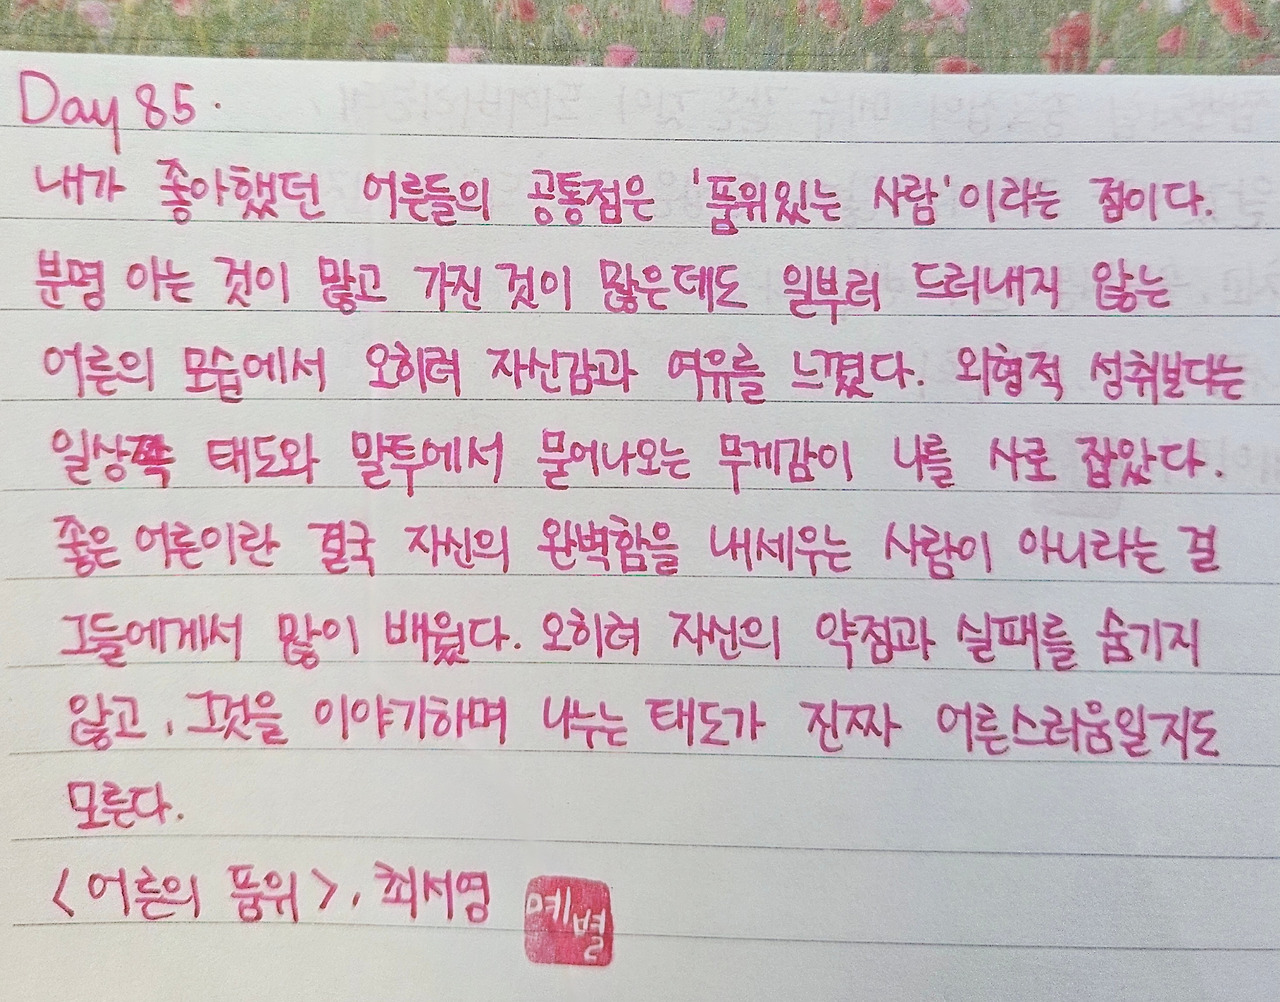 Day 85.
내가 좋아했던 어른들의 공통점은 '품위있는 사람'이라는 점이다.
분명 아는 것이 많고 가진 것이 많은데도 일부러 드러내지 않는
어른의 모습에서 오히려 자신감과 여유를 느꼈다. 외형적 성취보다는
일상쪽 태도와 말투에서 묻어나오는 무게감이 나를 사로 잡았다.
좋은 어른이란 결국 자신의 완벽함을 내세우는 사람이 아니라는 걸
그들에게서 많이 배웠다. 오히려 자신의 약점과 실패를 숨기지
않고, 그것을 이야기하며 나누는 태도가 진짜 어른스러움일지도
모른다.
<어른의 품위>, 최서영
예별